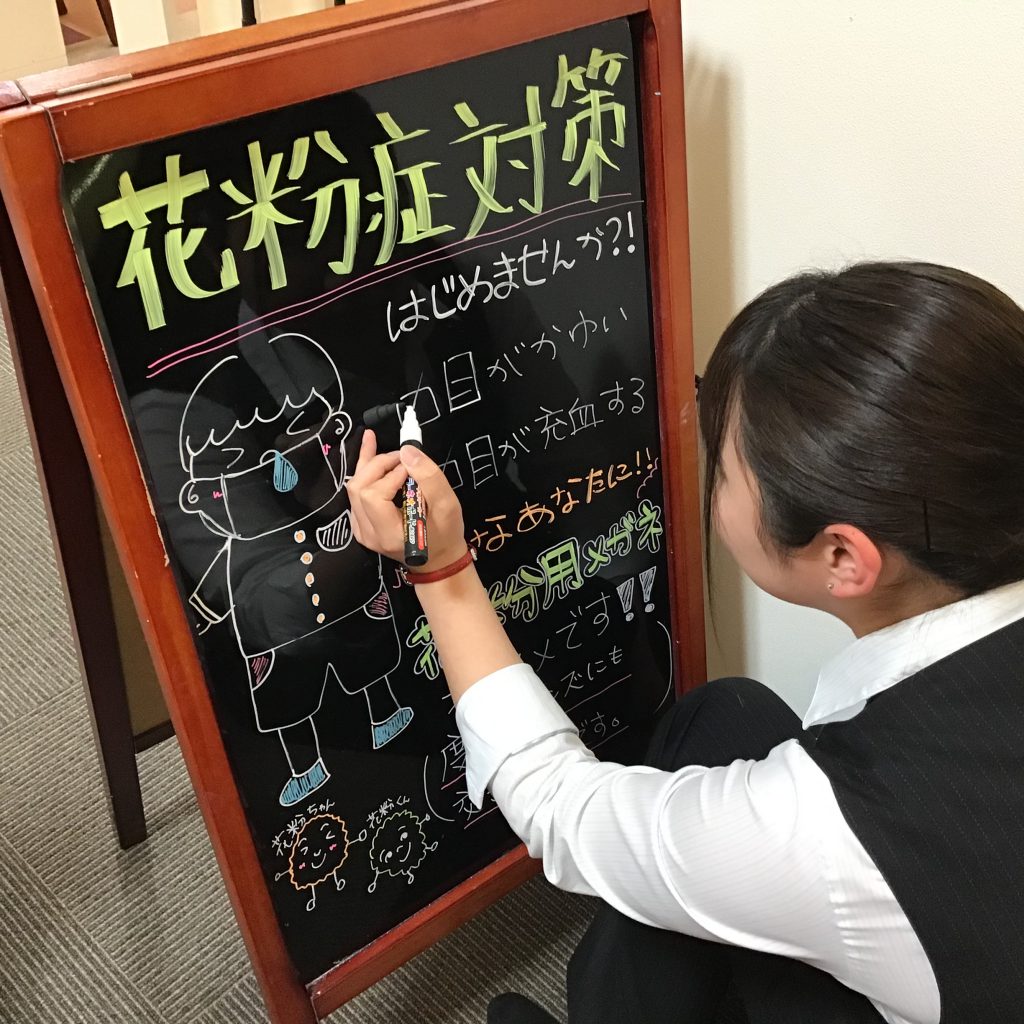 花粉症対策
はじめませんか?!
目がかゆい
目が充血する
なあなたに!!
粉用メガネ
メです!!
ズにも
です。
花粉ちゃん
花粉くん